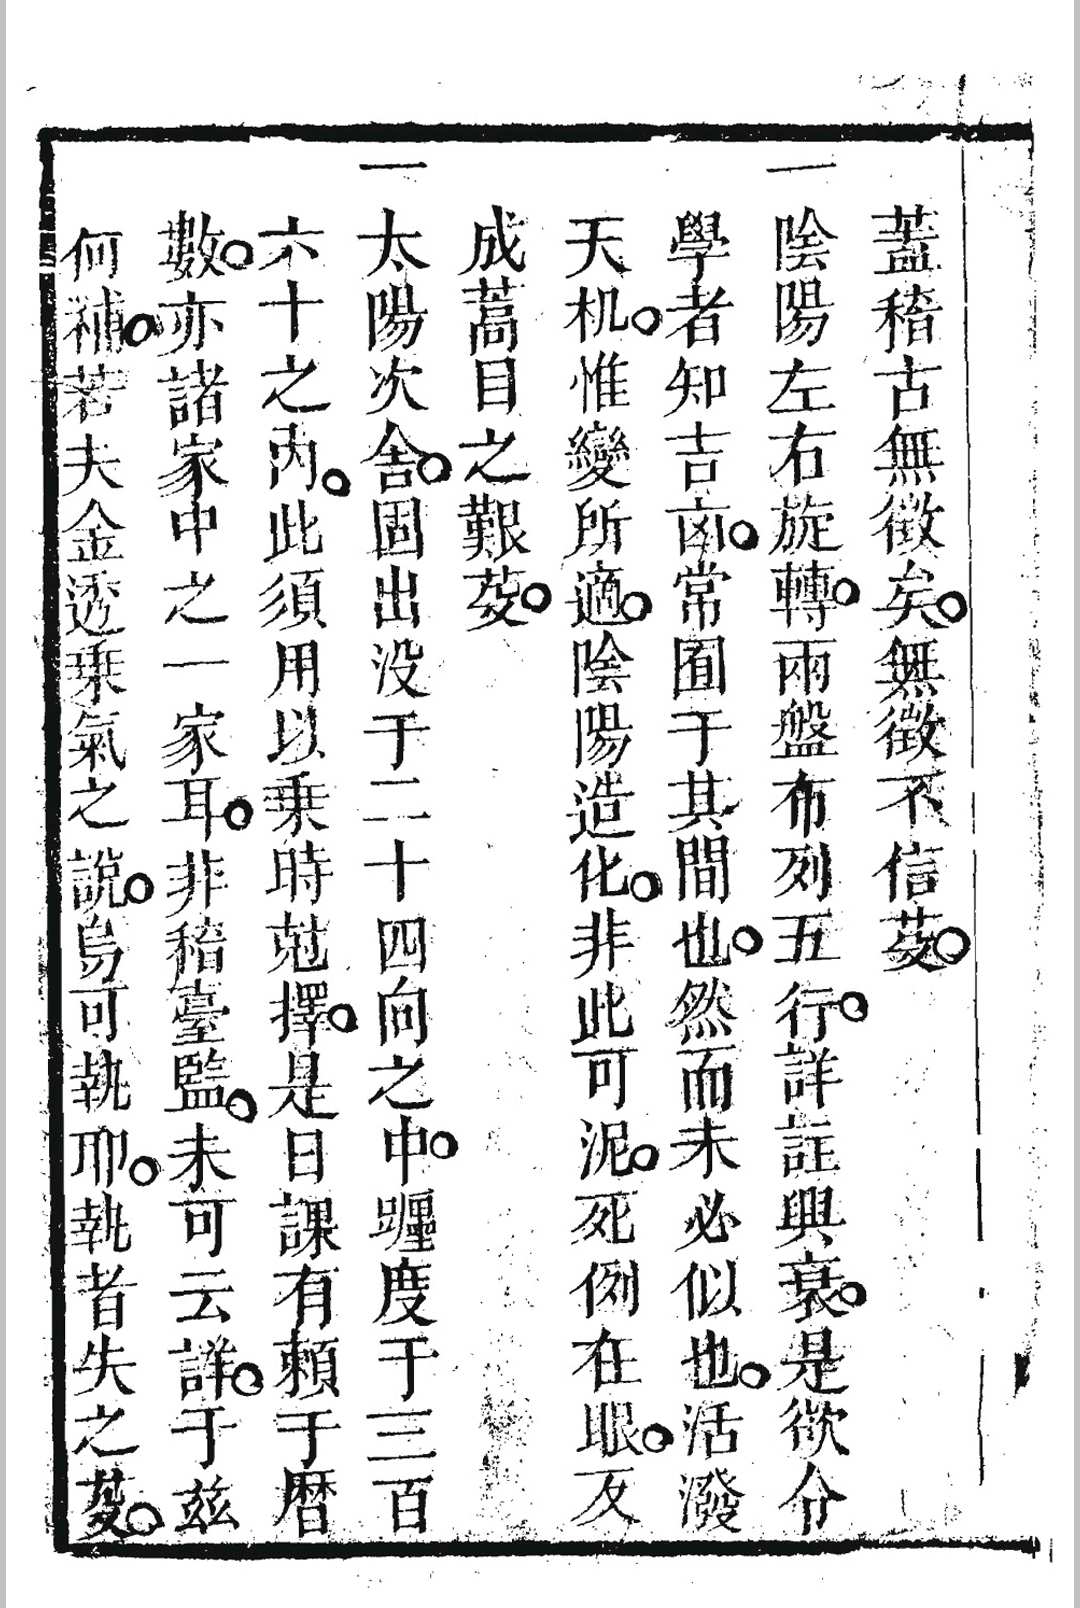 蓋稽古無徵矣無徵不信茇
一陰陽左右旋轉兩盤布列五行詳註興衰是欲令
學者知吉凶常囿于其間也然而未必似也活潑
天机惟變所適陰陽造化非此可泥死例在眼反
成蒿目之艱茇
一太陽次舍固出没于二十四向之中躔度于三百
六十之內此須用以乗時尅擇是日課有賴于曆
數亦諸家中之一家耳非稽臺監未可云詳于兹
何補若夫金透乗氣之說烏可執耶執者失之茇